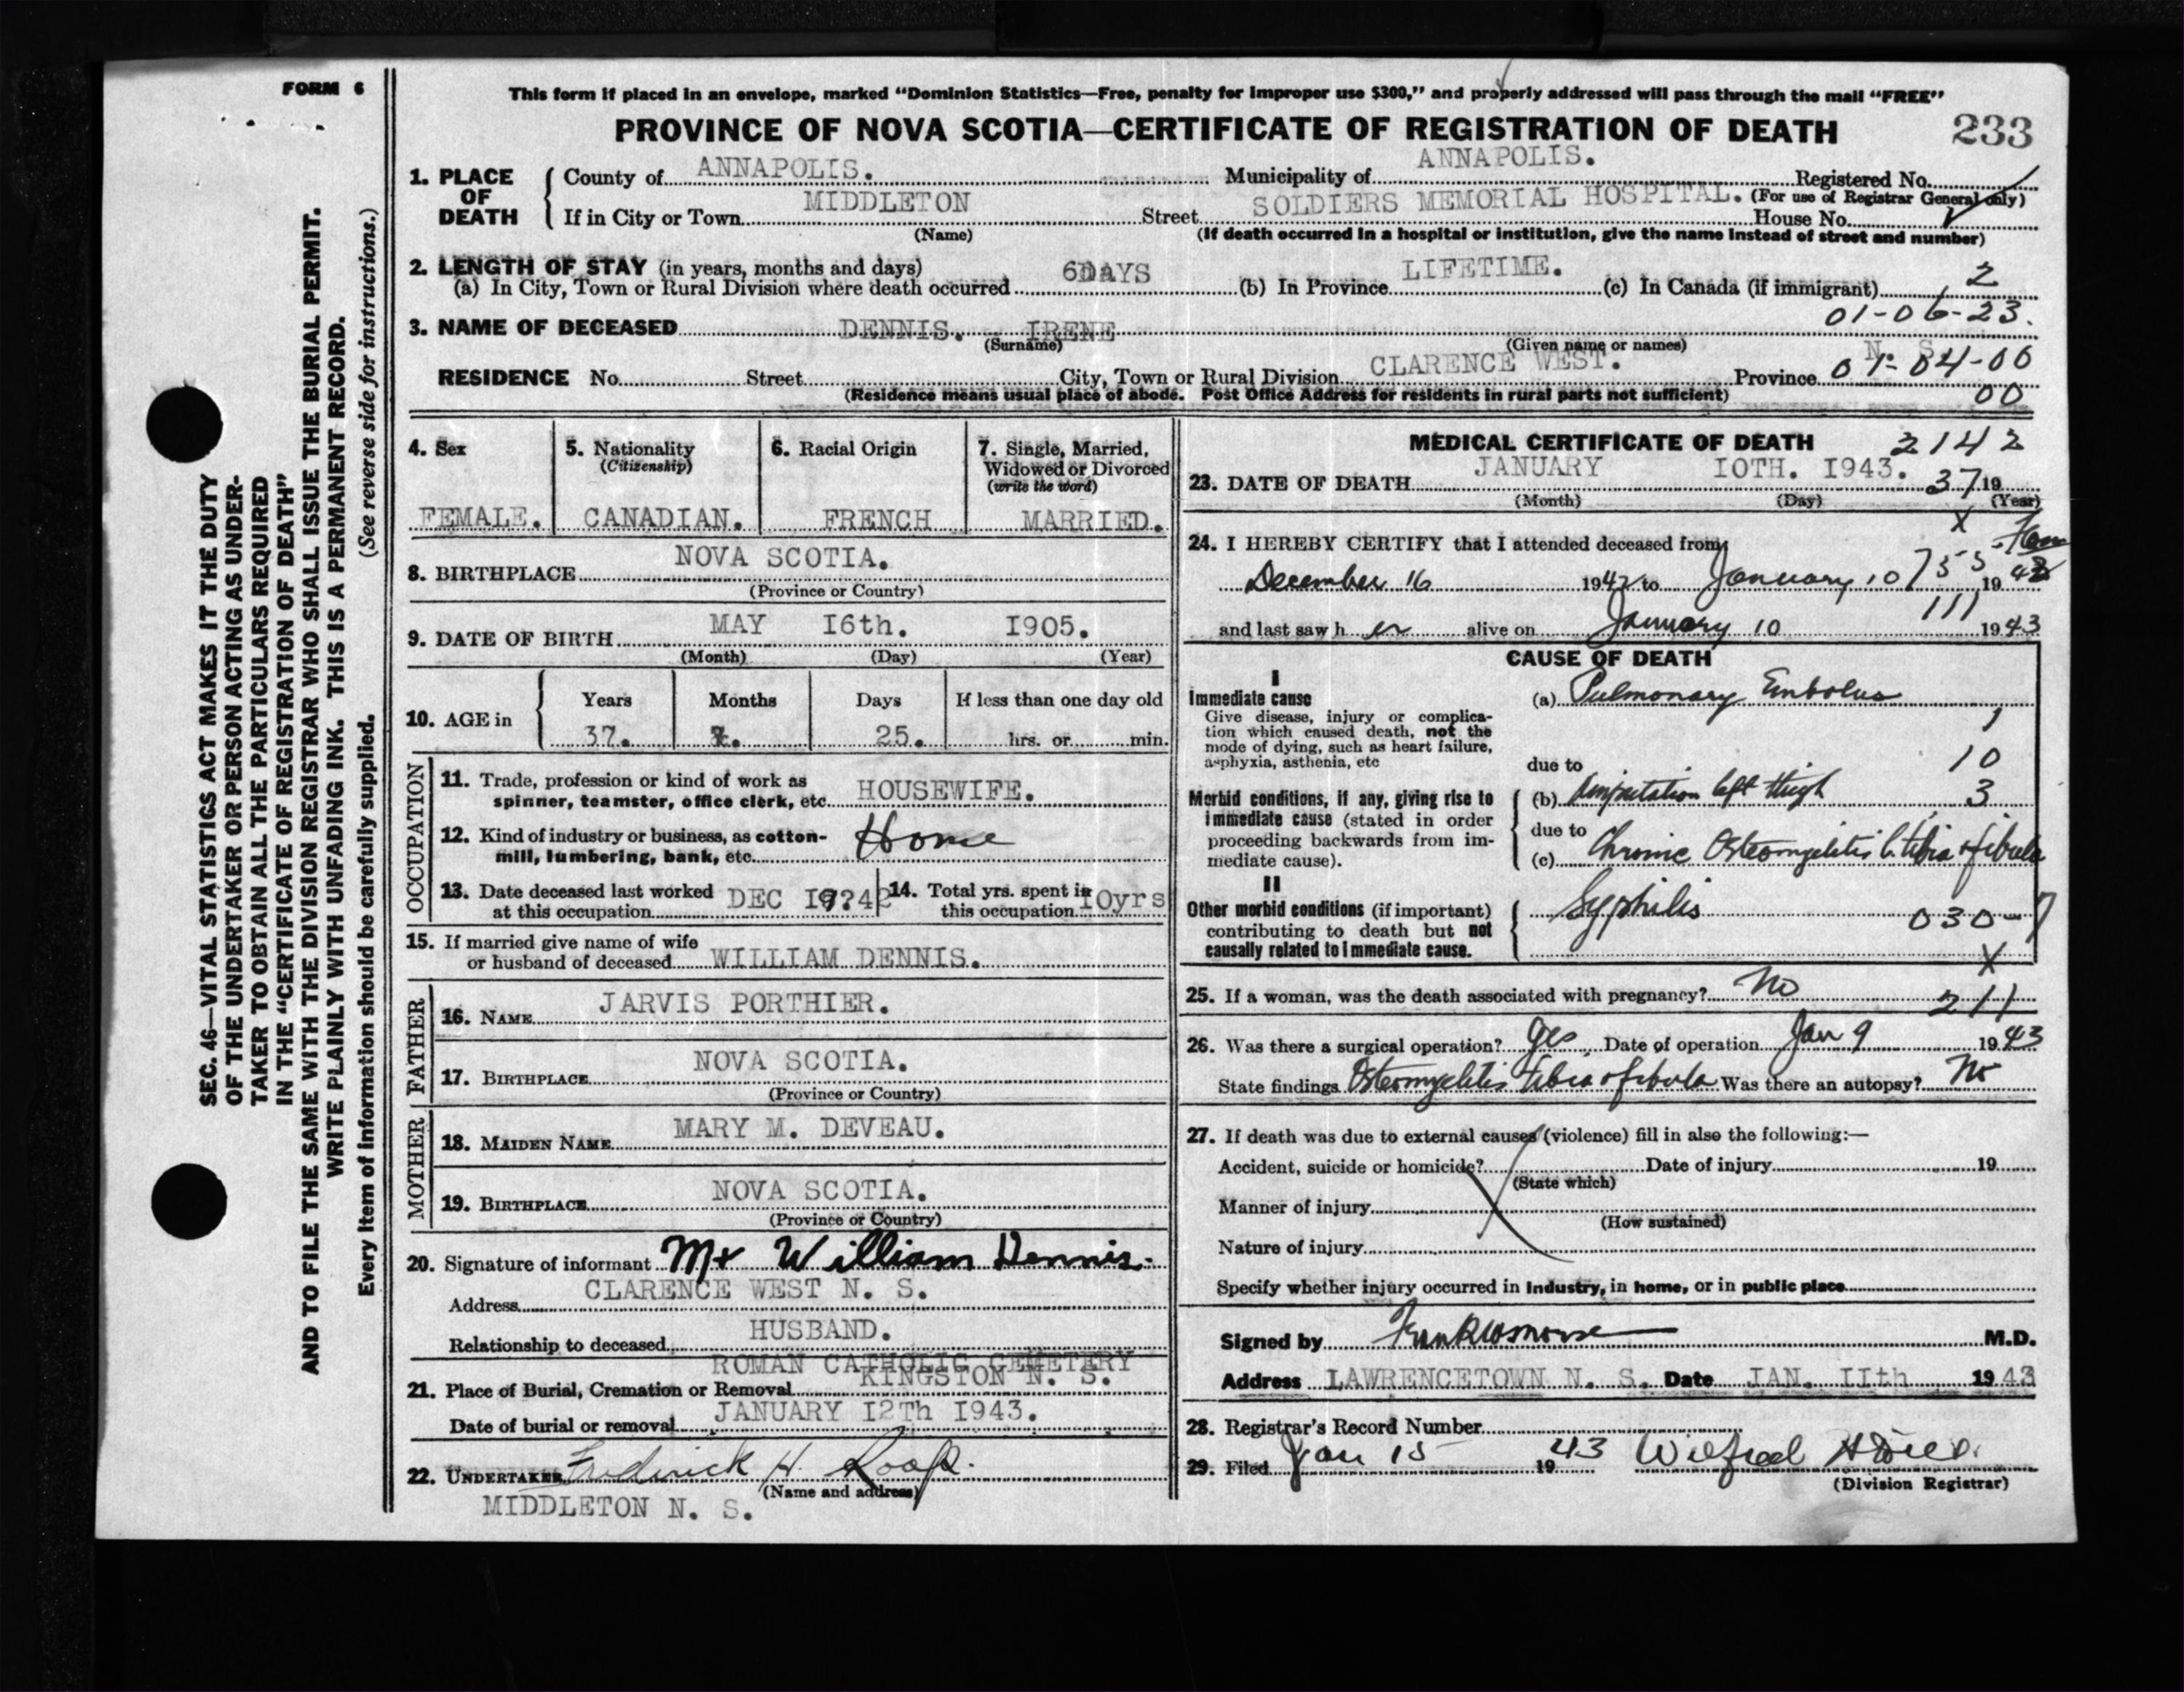 FORM 6
This form if placed in an envelope, marked “Dominion Statistics—Free, penalty for improper use $300,” and properly addressed will pass through the mail “FREE”
PROVINCE OF NOVA SCOTIA—CERTIFICATE OF REGISTRATION OF DEATH 233
1. PLACE OF DEATH
County of ANNAPOLIS. Municipality of ANNAPOLIS. Registered No.
(For use of Registrar General only)
If in City or Town MIDDLETON Street SOLDIERS MEMORIAL HOSPITAL. House No.
(Name) (If death occurred in a hospital or institution, give the name instead of street and number)
2. LENGTH OF STAY (in years, months and days)
(a) In City, Town or Rural Division where death occurred 6DAYS (b) In Province LIFETIME. (c) In Canada (if immigrant) 2
01-06-23.
3. NAME OF DECEASED DENNIS. IRENE
(Surname) (Given name or names)
RESIDENCE No. Street City, Town or Rural Division CLARENCE WEST. Province N. S. 01-04-00
(Residence means usual place of abode. Post Office Address for residents in rural parts not sufficient) 00
4. Sex
FEMALE.
5. Nationality
(Citizenship)
CANADIAN.
6. Racial Origin
FRENCH
7. Single, Married,
Widowed or Divorced
(write the word)
MARRIED.
8. BIRTHPLACE NOVA SCOTIA.
(Province or Country)
9. DATE OF BIRTH MAY I6th. I905.
(Month) (Day) (Year)
10. AGE in
Years Months Days If less than one day old
37. 7. 25. hrs. or min.
OCCUPATION
11. Trade, profession or kind of work as
spinner, teamster, office clerk, etc. HOUSEWIFE.
12. Kind of industry or business, as cotton-
mill, lumbering, bank, etc. Home
13. Date deceased last worked
at this occupation DEC I9?42
14. Total yrs. spent in
this occupation IOyrs
15. If married give name of wife
or husband of deceased WILLIAM DENNIS.
FATHER
16. NAME JARVIS PORTHIER.
17. BIRTHPLACE NOVA SCOTIA.
(Province or Country)
MOTHER
18. MAIDEN NAME MARY M. DEVEAU.
19. BIRTHPLACE NOVA SCOTIA.
(Province or Country)
20. Signature of informant Mr William Dennis.
Address CLARENCE WEST N. S.
Relationship to deceased HUSBAND.
ROMAN CATHOLIC CEMETERY
21. Place of Burial, Cremation or Removal KINGSTON N. S.
Date of burial or removal JANUARY I2Th I943.
22. UNDERTAKER Frederick H. Roop.
(Name and address)
MIDDLETON N. S.
MEDICAL CERTIFICATE OF DEATH 2142
23. DATE OF DEATH JANUARY IOTH. I943. 37 19
(Month) (Day) (Year)
X
24. I HEREBY CERTIFY that I attended deceased from
December 16 1942 to January 10 19 43
755
111
and last saw h er alive on January 10 1943
CAUSE OF DEATH
I
Immediate cause
Give disease, injury or complica-
tion which caused death, not the
mode of dying, such as heart failure,
asphyxia, asthenia, etc
(a) Pulmonary Embolus
1
due to 10
Morbid conditions, if any, giving rise to
immediate cause (stated in order
proceeding backwards from im-
mediate cause).
(b) Amputation left thigh 3
due to
(c) Chronic Osteomyelitis l. tibia & fibula
II
Other morbid conditions (if important)
contributing to death but not
causally related to immediate cause.
Syphilis 030-7
X
25. If a woman, was the death associated with pregnancy? No
211
26. Was there a surgical operation? Yes Date of operation Jan 9 1943
State findings Osteomyelitis tibia & fibula Was there an autopsy? No
27. If death was due to external causes (violence) fill in also the following:—
Accident, suicide or homicide? Date of injury 19
(State which)
Manner of injury
(How sustained)
Nature of injury
Specify whether injury occurred in industry, in home, or in public place
Signed by M.D.
Address LAWRENCETOWN N. S. Date JAN. IIth 1943
28. Registrar's Record Number
29. Filed Jan 15 1943 Wilfred
(Division Registrar)
SEC. 46—VITAL STATISTICS ACT MAKES IT THE DUTY
OF THE UNDERTAKER OR PERSON ACTING AS UNDER-
TAKER TO OBTAIN ALL THE PARTICULARS REQUIRED
IN THE “CERTIFICATE OF REGISTRATION OF DEATH”
AND TO FILE THE SAME WITH THE DIVISION REGISTRAR WHO SHALL ISSUE THE BURIAL PERMIT.
WRITE PLAINLY WITH UNFADING INK. THIS IS A PERMANENT RECORD.
Every item of information should be carefully supplied. (See reverse side for instructions.)